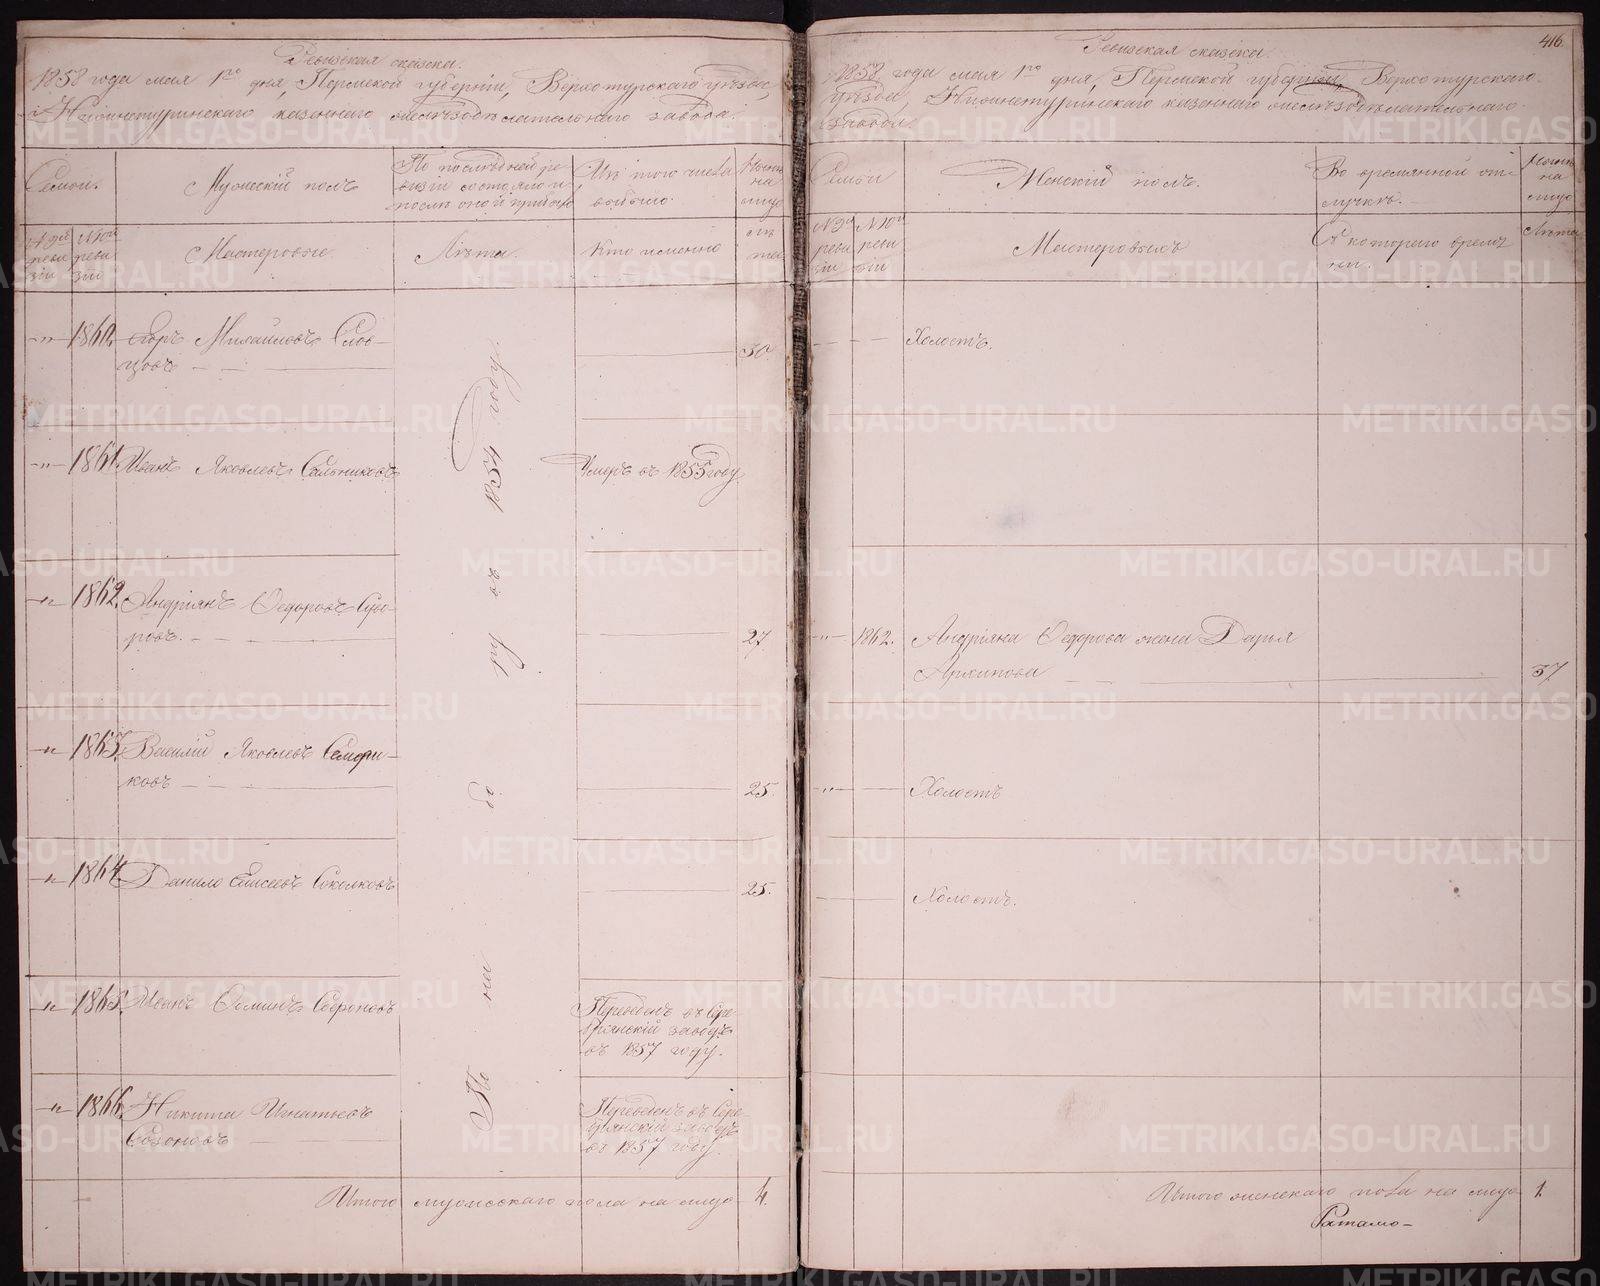 Ревизская сказка.
1858 года мая 1го дня, Пермской губернии, Верхотурскаго уѣзда,
Нижнетуринскаго казеннаго желѣзодѣлательнаго завода.
Семьи.
Мужескій полъ
По послѣдней ре-
визіи состояло и
послѣ оной прибыло
Изъ того числа
выбыло.
Нынѣ
на
лицо
№ 9й
реви
зіи
№ 10й
реви
зіи
Мастеровые.
Лѣта.
Кто именно
Лѣ
та
"
1860.
Егоръ Михайловъ Слов-
цовъ
30.
1861.
Иванъ Яковлевъ Сальниковъ
Умеръ въ 1855 году
1862.
Андріянъ Ѳедоровъ Суво-
ровъ.
27
1863.
Василій Яковлевъ
ковъ
25.
1864.
Данило Елисеевъ Соколковъ
25.
1865.
Иванъ
Переведенъ въ Сере-
брянскій заводъ
въ 1857 году.
1866.
Никита Игнатьевъ
Созоновъ
Переведенъ въ Сере-
брянскій заводъ
въ 1857 году.
По на бо ру въ 1854 году.
Итого мужескаго пола на лицо
4.
416.
Ревизская сказка.
1858 года мая 1го дня, Пермской губерніи, Верхотурскаго
уѣзда, Нижнетуринскаго казеннаго желѣзодѣлательнаго
завода.
Семьи
Женскій полъ.
Во временной от-
лучкѣ.
Нынѣ
на
лицо
№ 9й
реви
зіи
№ 10й
реви
зіи
Мастеровыхъ
Съ котораго време
ни.
Лѣта
Холостъ.
" 1862.
Андріяна Ѳедорова жена Дарья
Архипова
37
Холостъ
Холостъ.
Итого женскаго пола на лицо
1.
METRIKI.GASO-URAL.RU